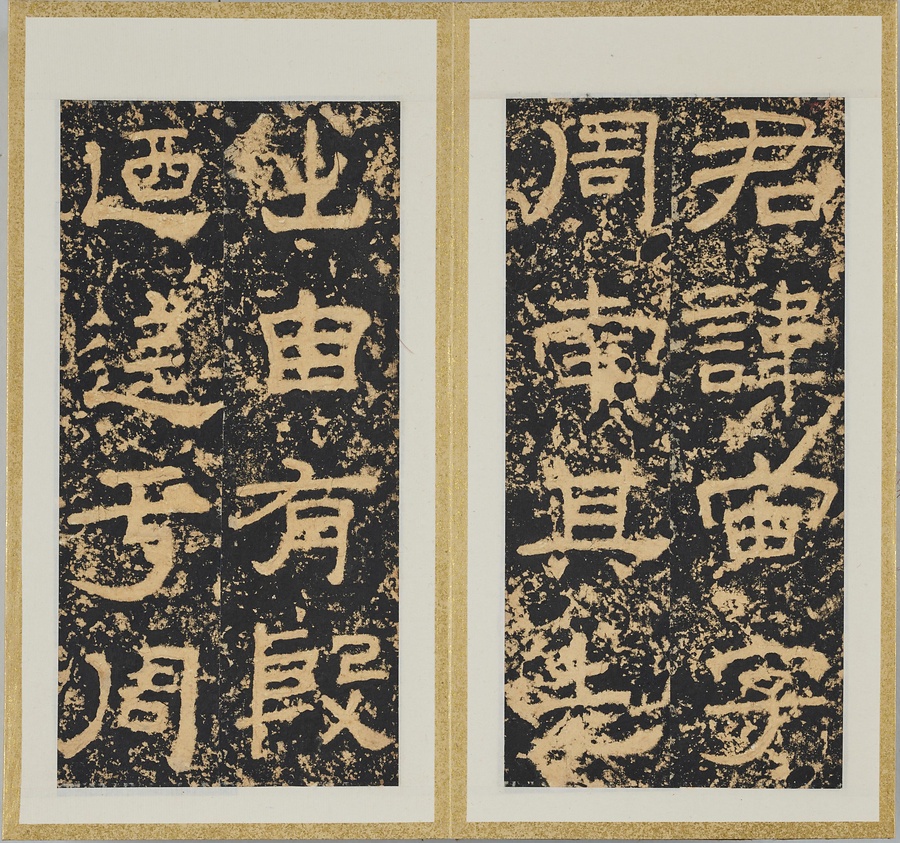 君諱宙字
周南其先
出自有殷
迺迄于周